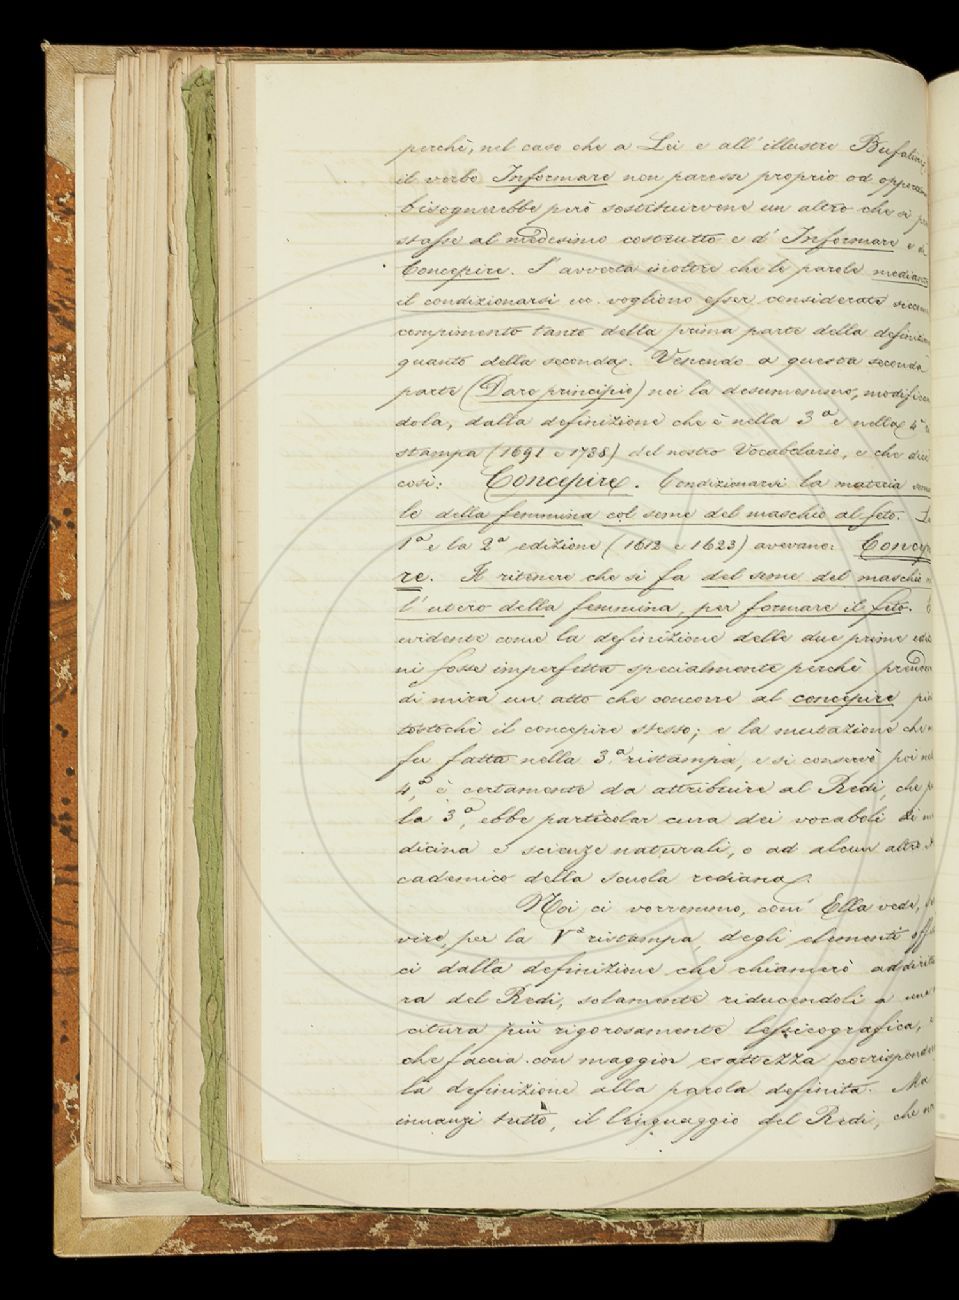 perchè, nel caso che a Lei e all' illustre Bufalini
il verbo Informare non paresse proprio od opportuno
bisognerebbe però sostituirvene un altro che si pre
stasse al medesimo costrutto e d' Informare e di
Concepire. S' avverta inoltre che le parole mediante
il condizionarsi ec. vogliono esser considerate siccome
compimento tanto della prima parte della definizione
quanto della seconda. Venendo a questa seconda
parte (Dare principio) noi la desumemmo, modifican
dola, dalla definizione che è nella 3ª e nella 4ª
stampa (1691 e 1738) del nostro Vocabolario, e che dice
così: Concepire. Condizionarsi la materia semina
le della femmina col seme del maschio al feto. La
1ª e la 2ª edizione (1612 e 1623) avevano: Concepi
re. Il ritenere che si fa del seme del maschio
l' utero della femmina, per formare il feto. È
evidente come la definizione delle due prime edizio
ni fosse imperfetta specialmente perchè prendeva
di mira un atto che concorre al concepire piut
tostochè il concepire stesso; e la mutazione che
fu fatta nella 3.ª ristampa, e si conservò poi nella
4.ª, è certamente da attribuire al Redi, che per
la 3.ª, ebbe particolar cura dei vocaboli di me
dicina e scienze naturali, o ad alcun altro Ac
cademico della scuola rediana.
Noi ci vorremmo, com' Ella vede, ser
vire, per la Vª ristampa, degli elementi offerti
ci dalla definizione che chiamerò addirittu
ra del Redi, solamente riducendoli a una
citura più rigorosamente lessicografica,
che faccia con maggior esattezza corrispondere
la definizione alla parola definita. Ma
innanzi tutto, il linguaggio del Redi, che